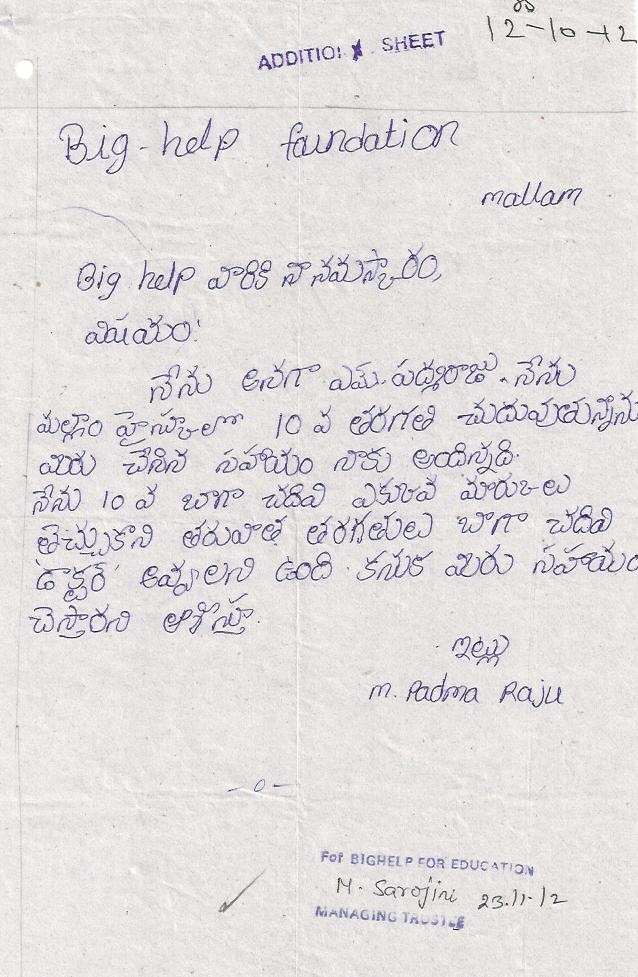 12-10-12
ADDITION SHEET
Big-help foundation
mallam
Big help వారికి నా నమస్కారం,
విషయం:
నేను అనగా ఎమ్.పద్మరాజు. నేను
మల్లాం హైస్కూలో 10 వ తరగతి చుదువుతున్నాను
మిరు చేసిన సహాయం నాకు అందిన్నది.
నేను 10 వ బాగా చదివి ఎకుకవ మారుకలు
తెచ్చుకొని తరువాత తరగతులు బాగా చదివి
'డాక్టర్' అవ్వాలని ఉంది. కనుక మిరు సహాయం
చెస్తారని ఆశిస్తూ.
ఇట్లు
M. Padma Raju
-0-
For BIGHELP FOR EDUCATION
M. Sarojini 23.11.12
MANAGING TRUSTEE